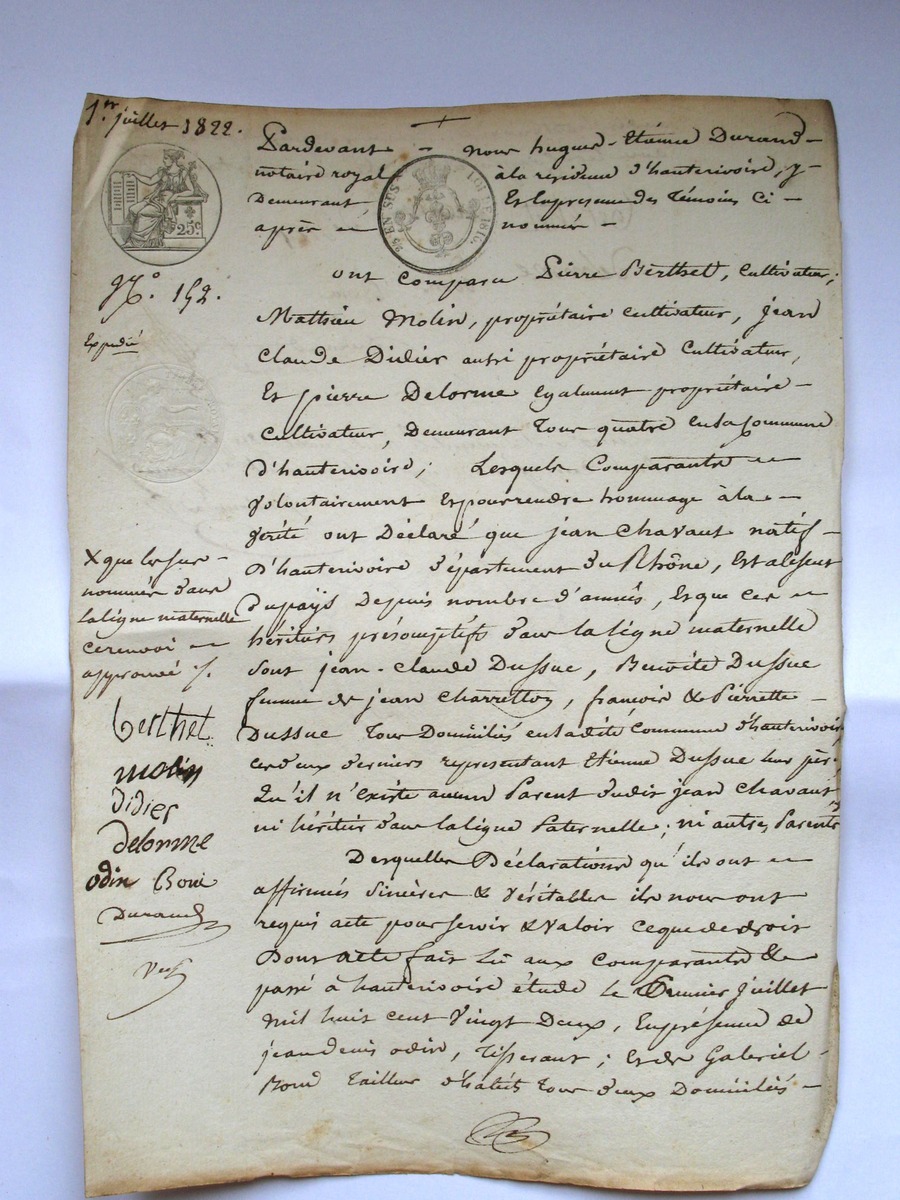 1.er juillet 1822.
Pardevant nous hugue-Etienne Durand
notaire royal à la residence d'hauterivoire, y
Demeurant Et Enpresence des Témoins Ci
après nommés
25 EN SUS LOI 1816.
25c.
N.° 152.
Expedié
ont Comparu Pierre Berthet, Cultivateur;
Mathieu Molin, propriétaire cultivateur, jean
Claude Didier aussi propriétaire Cultivateur,
Et pierre Delorme Egalement propriétaire
Cultivateur, Demeurant Tous quatre enla Commune
D'hauterivoire; Lesquels Comparants
Volontairement Etpourrendre hommage àla
Vérité ont Déclaré que jean Chavant natif
D'hauterivoire Département Du Rhône, Est absent
Dupays Depuis nombre d'années, Et que ces
héritiers présomptifs Dans laligne maternelle
Sont jean-Claude Dussuc, Benoîte Dussuc
femme de jean Charretton, françois & Pierrette
Dussuc Tous Domiciliés enladite Commune d'hauterivoire,
ces deux derniers representant Etienne Dussuc leur père,
Qu'il n'existe aucun Parent dudit jean Chavant
ni héritier Dans laligne Paternelle; ni autres Parents
X que les sus
nommés dans
laligne maternelle
cerenvoi
approuvé ./.
berthet
molin
didier
delorme
odin Boni
Durand
Desquelles Déclarations qu'ils ont
affirmés Sincères & Véritables ils nous ont
requis acte pour servir & Valoir ceque de droit
Dont Acte fait Lû aux Comparants &
passé à hauterivoire étude le Premier juillet
mil huit cent Vingt Deux, Enprésence de
jean denis odin, Tisserant; Et de Gabriel
Boni Tailleur d'habits Tous deux Domiciliés